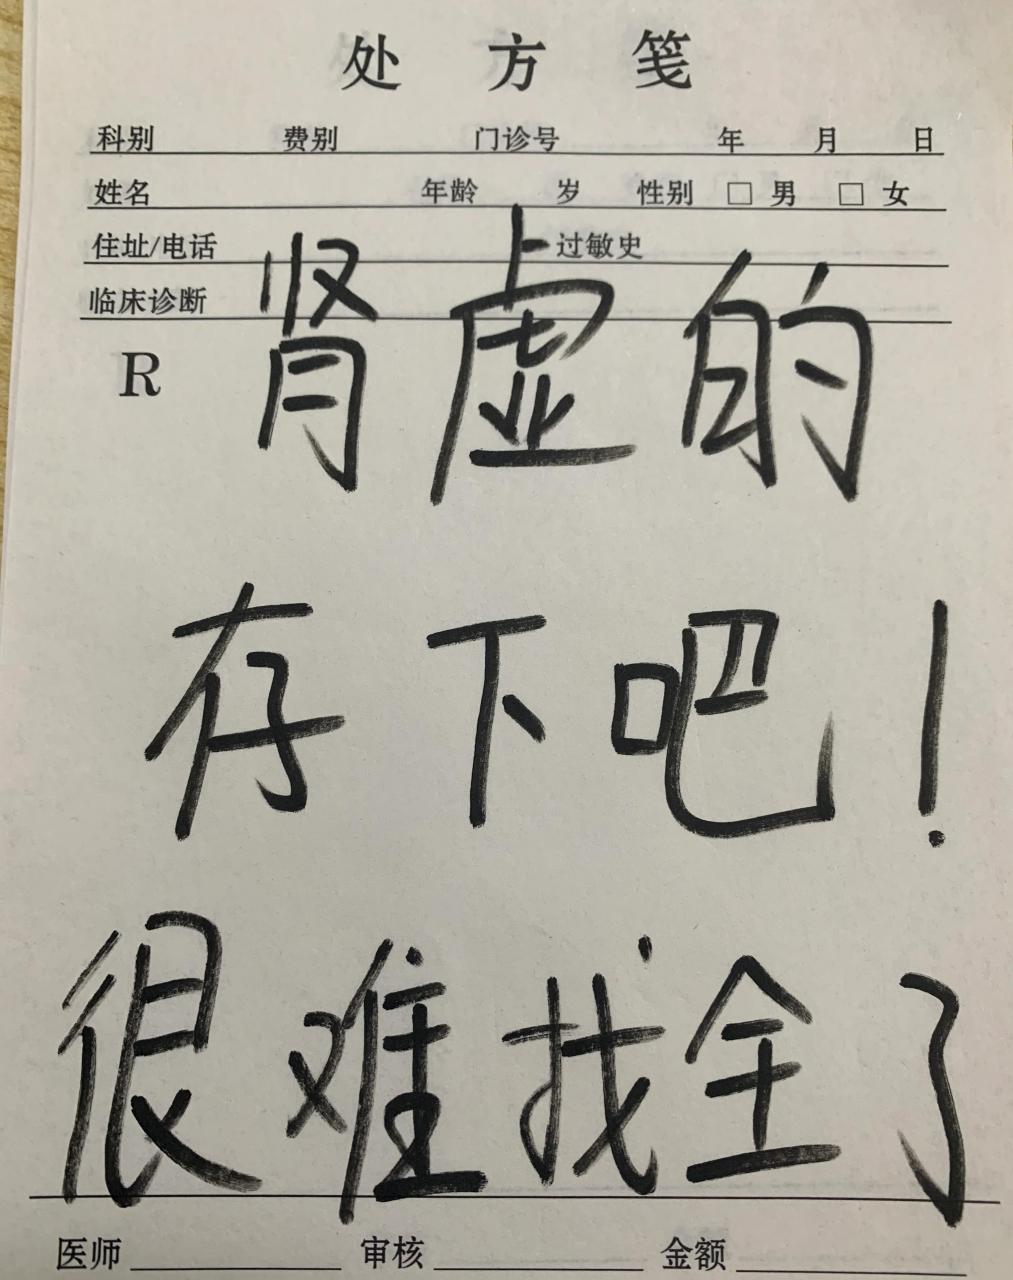 处方笺
科别 费别 门诊号 年 月 日
姓名 年龄 岁 性别 □ 男 □ 女
住址/电话 过敏史
临床诊断
R
肾虚的
存下吧！
很难找全了
医师 审核 金额